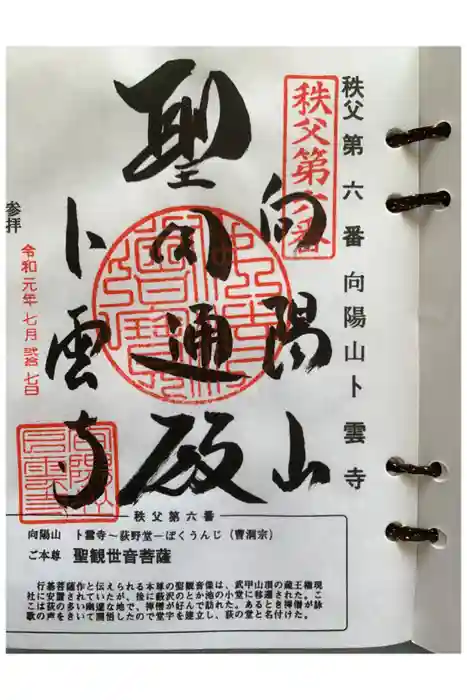 秩父第六番向陽山卜雲寺
秩父第六番
向陽山
聖
通殿
卜雲寺
参拝
令和元年七月弐拾七日
秩父第六番
向陽山 卜雲寺〜荻野堂−ぼくうんじ（曹洞宗）
ご本尊 聖観世音菩薩
行基菩薩作と伝えられる本尊の聖観音像は、武甲山頂の蔵王権現
社に安置されていたが、後に藪沢のとか池の小堂に移遷された。こ
こは荻の多い幽邃な地で、禅僧が好んで訪れた。あるとき禅僧が詠
歌の声をきいて開悟したので堂宇を建立し、荻の堂と名付けた。